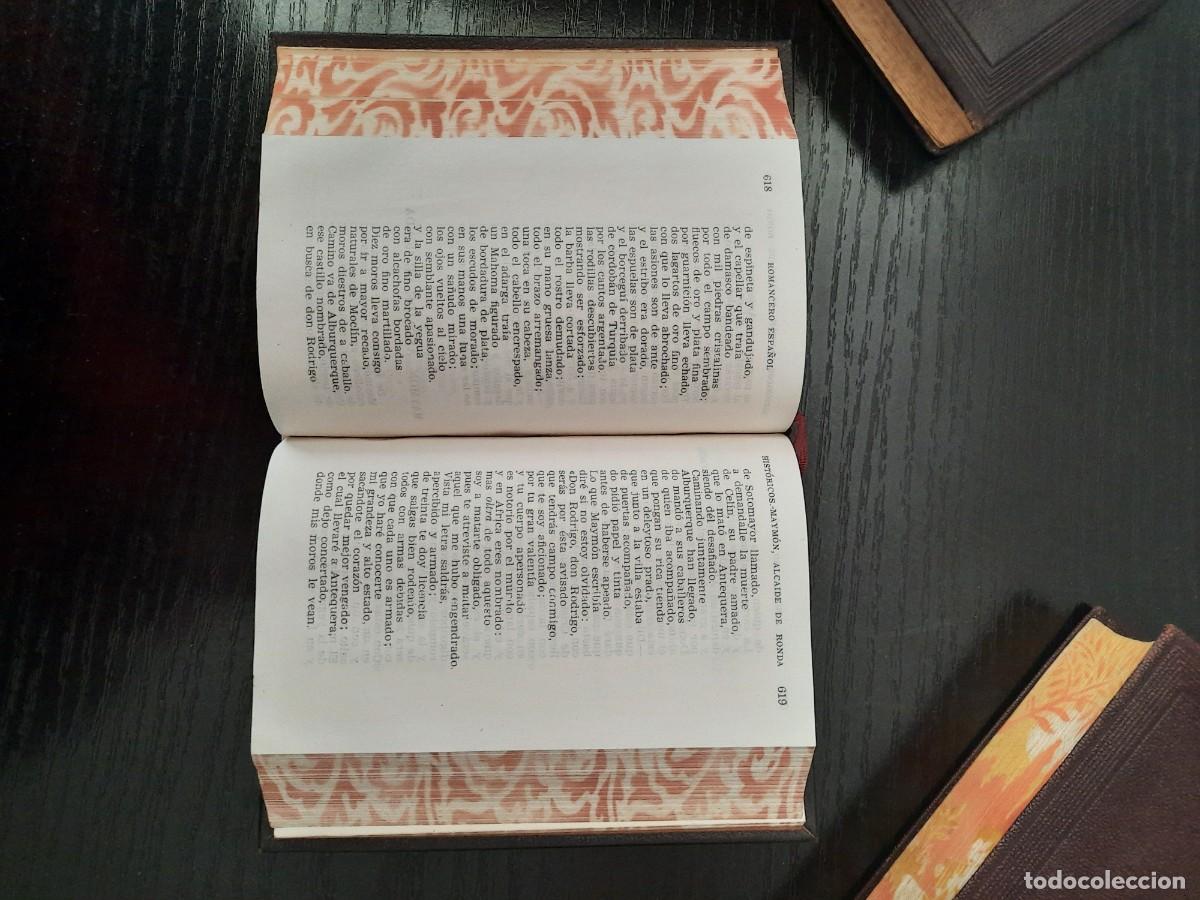 618 ROMANCERO ESPAÑOL
de espineta y gandujado,
y el capellar que traía
de damasco bandeado
con mil piedras cristalinas
por todo el campo sembrado;
fluecos de oro y plata fina
por guarnición lleva echado,
dos lagartos de oro fino
con que lo lleva abrochado;
las asiones son de ante
y el estribo era dorado,
las espuelas son de plata
y el borceguí derribado
de cordobán de Turquía
por los cantos argentado,
las rodillas descubiertas
mostrando ser esforzado;
la barba lleva cortada
todo el rostro demudado;
en su mano gruesa lanza,
todo el brazo arremangado;
una toca en su cabeza,
todo el cabello encrespado,
en el adarga traía
un Mahoma figurado
de bordadura de plata,
los escudos de morado;
en sus manos una luna
con un sañudo mirado;
los ojos vueltos al cielo
con semblante apasionado,
y la silla de la yegua
era de fino brocado
con alcachofas bordadas
de oro fino martillado.
Diez moros lleva consigo
por ir a mayor recado,
naturales de Moclín,
moros diestros de a caballo.
Camino va de Alburquerque,
ese castillo nombrado,
en busca de don Rodrigo
HISTÓRICOS.-MAYMÓN, ALCAIDE DE RONDA 619
de Sotomayor llamado,
a demandalle la muerte
de Celín, su padre amado,
que lo mató en Antequera,
siendo dél desafiado.
Caminando juntamente
Alburquerque han llegado,
do mandó a sus caballeros
de quien iba acompañado,
que pongan su rica tienda
en un deleytoso prado
que junto a la villa estaba
de puertas acompañado,
do pidió papel y tinta
antes de haberse apeado.
Lo que Maymón escribía
diré si no estoy olvidado:
«Don Rodrigo, don Rodrigo,
serás por ésta avisado
que tendrás campo conmigo,
que te soy aficionado;
por tu gran valentía
y tu cuerpo apersonado
es notorio por el mundo
y en Africa eres nombrado:
mas olara de todo aquesto
soy a matarte obligado,
pues te atreviste a matar
aquel que me hubo engendrado.
Vista mi letra saldrás,
apercibido y armado;
de treinta te doy licencia
que salgas bien rodeado,
todos con armas debidas
con que cada uno es armado;
que yo haré conocerte
mi grandeza y alto estado,
sacándote el corazón
por quedar mejor vengado;
el cual llevaré a Antequera,
como dejo concertado,
donde mis moros le vean,
todocoleccion